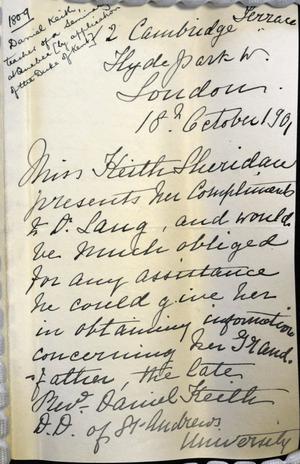 1809
Daniel Keith,
teacher of a Seminary
at Quebec [by application
of the Duke of Kent]
2 Cambridge Terrace
Hyde Park W.
London.
18th October 1901
Miss Keith Sheridan
presents her Compliments
to Dr. Lang, and would
be much obliged
for any assistance
he could give her
in obtaining information
concerning her Grand-
-father, the late
Revd. Daniel Keith
D.D. of St. Andrews
University